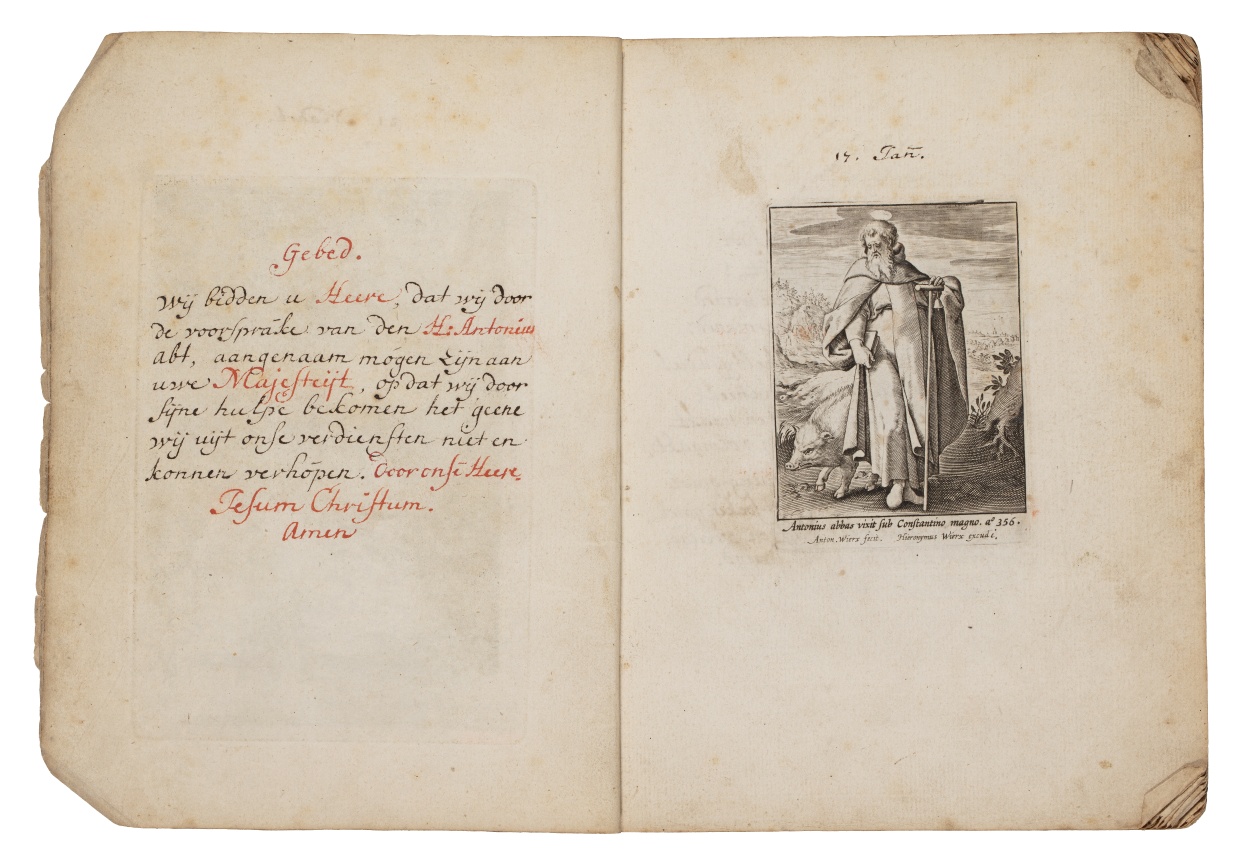 Gebed.
Wij bidden u Heere, dat wij door
de voorsprake van den H: Antonius
abt, aangenaam mogen zijn aan
uwe Majesteijt, op dat wij door
sijne hulpe bekomen het geene
wij uijt onse verdiensten niet en
konnen verhopen. Door onse Heere
Jesum Christum.
Amen
17. Jan̄.
Antonius abbas vixit sub Constantino magno. aº 356.
Anton. Wierx fecit. Hieronymus Wierx excudi.